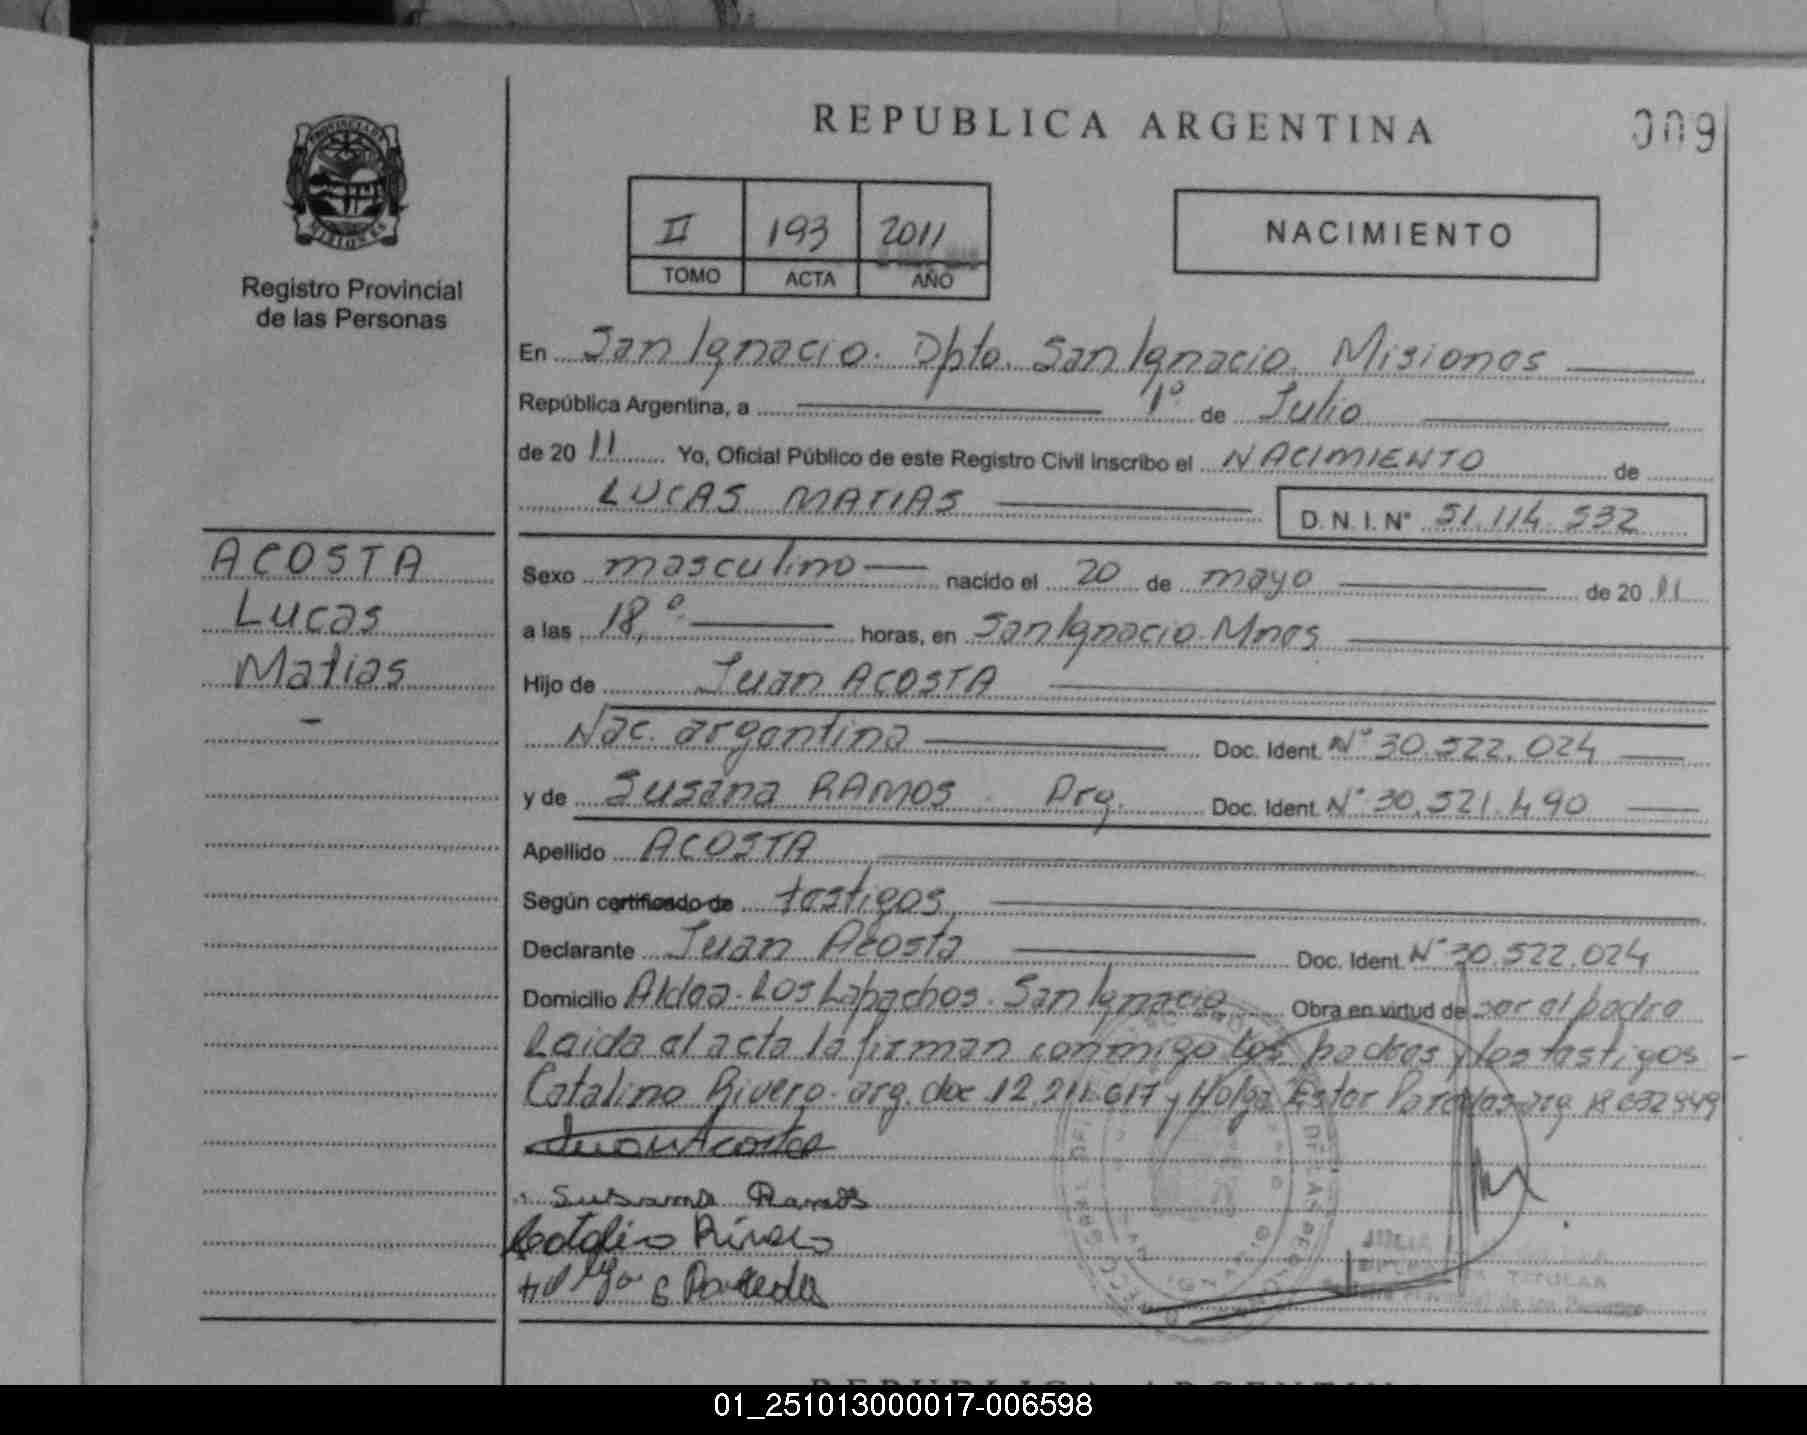 REPUBLICA ARGENTINA
009
PROVINCIA DE
MISIONES
Registro Provincial
de las Personas
II 193 2011
TOMO ACTA AÑO
NACIMIENTO
En San Ignacio. Dpto. San Ignacio. Misiones
República Argentina, a 1º de Julio
de 2011 Yo, Oficial Público de este Registro Civil inscribo el NACIMIENTO de
LUCAS MATIAS D. N. I. Nº 51.114.532
ACOSTA
Lucas
Matias
Sexo masculino nacido el 20 de mayo de 2011
a las 18,º horas, en San Ignacio. Mnes
Hijo de Juan ACOSTA
Nac. argentina Doc. Ident. Nº 30.522.024
y de Susana RAMOS Arg. Doc. Ident. Nº 30.521.490
Apellido ACOSTA
Según certificado de testigos
Declarante Juan Acosta Doc. Ident. Nº 30.522.024
Domicilio Aldea. Los Lapachos. San Ignacio Obra en virtud de ser el padre
Leida el acta la firman conmigo los padres y los testigos
Catalino Rivero. arg. doc 12.211.617 y Holga Ester Paredes arg 18.032949
Juan Acosta
Susana Ramos
Catalino Rivero
TITULAR
Provincial de las Personas
REPUBLICA ARGENTINA
01_251013000017-006598